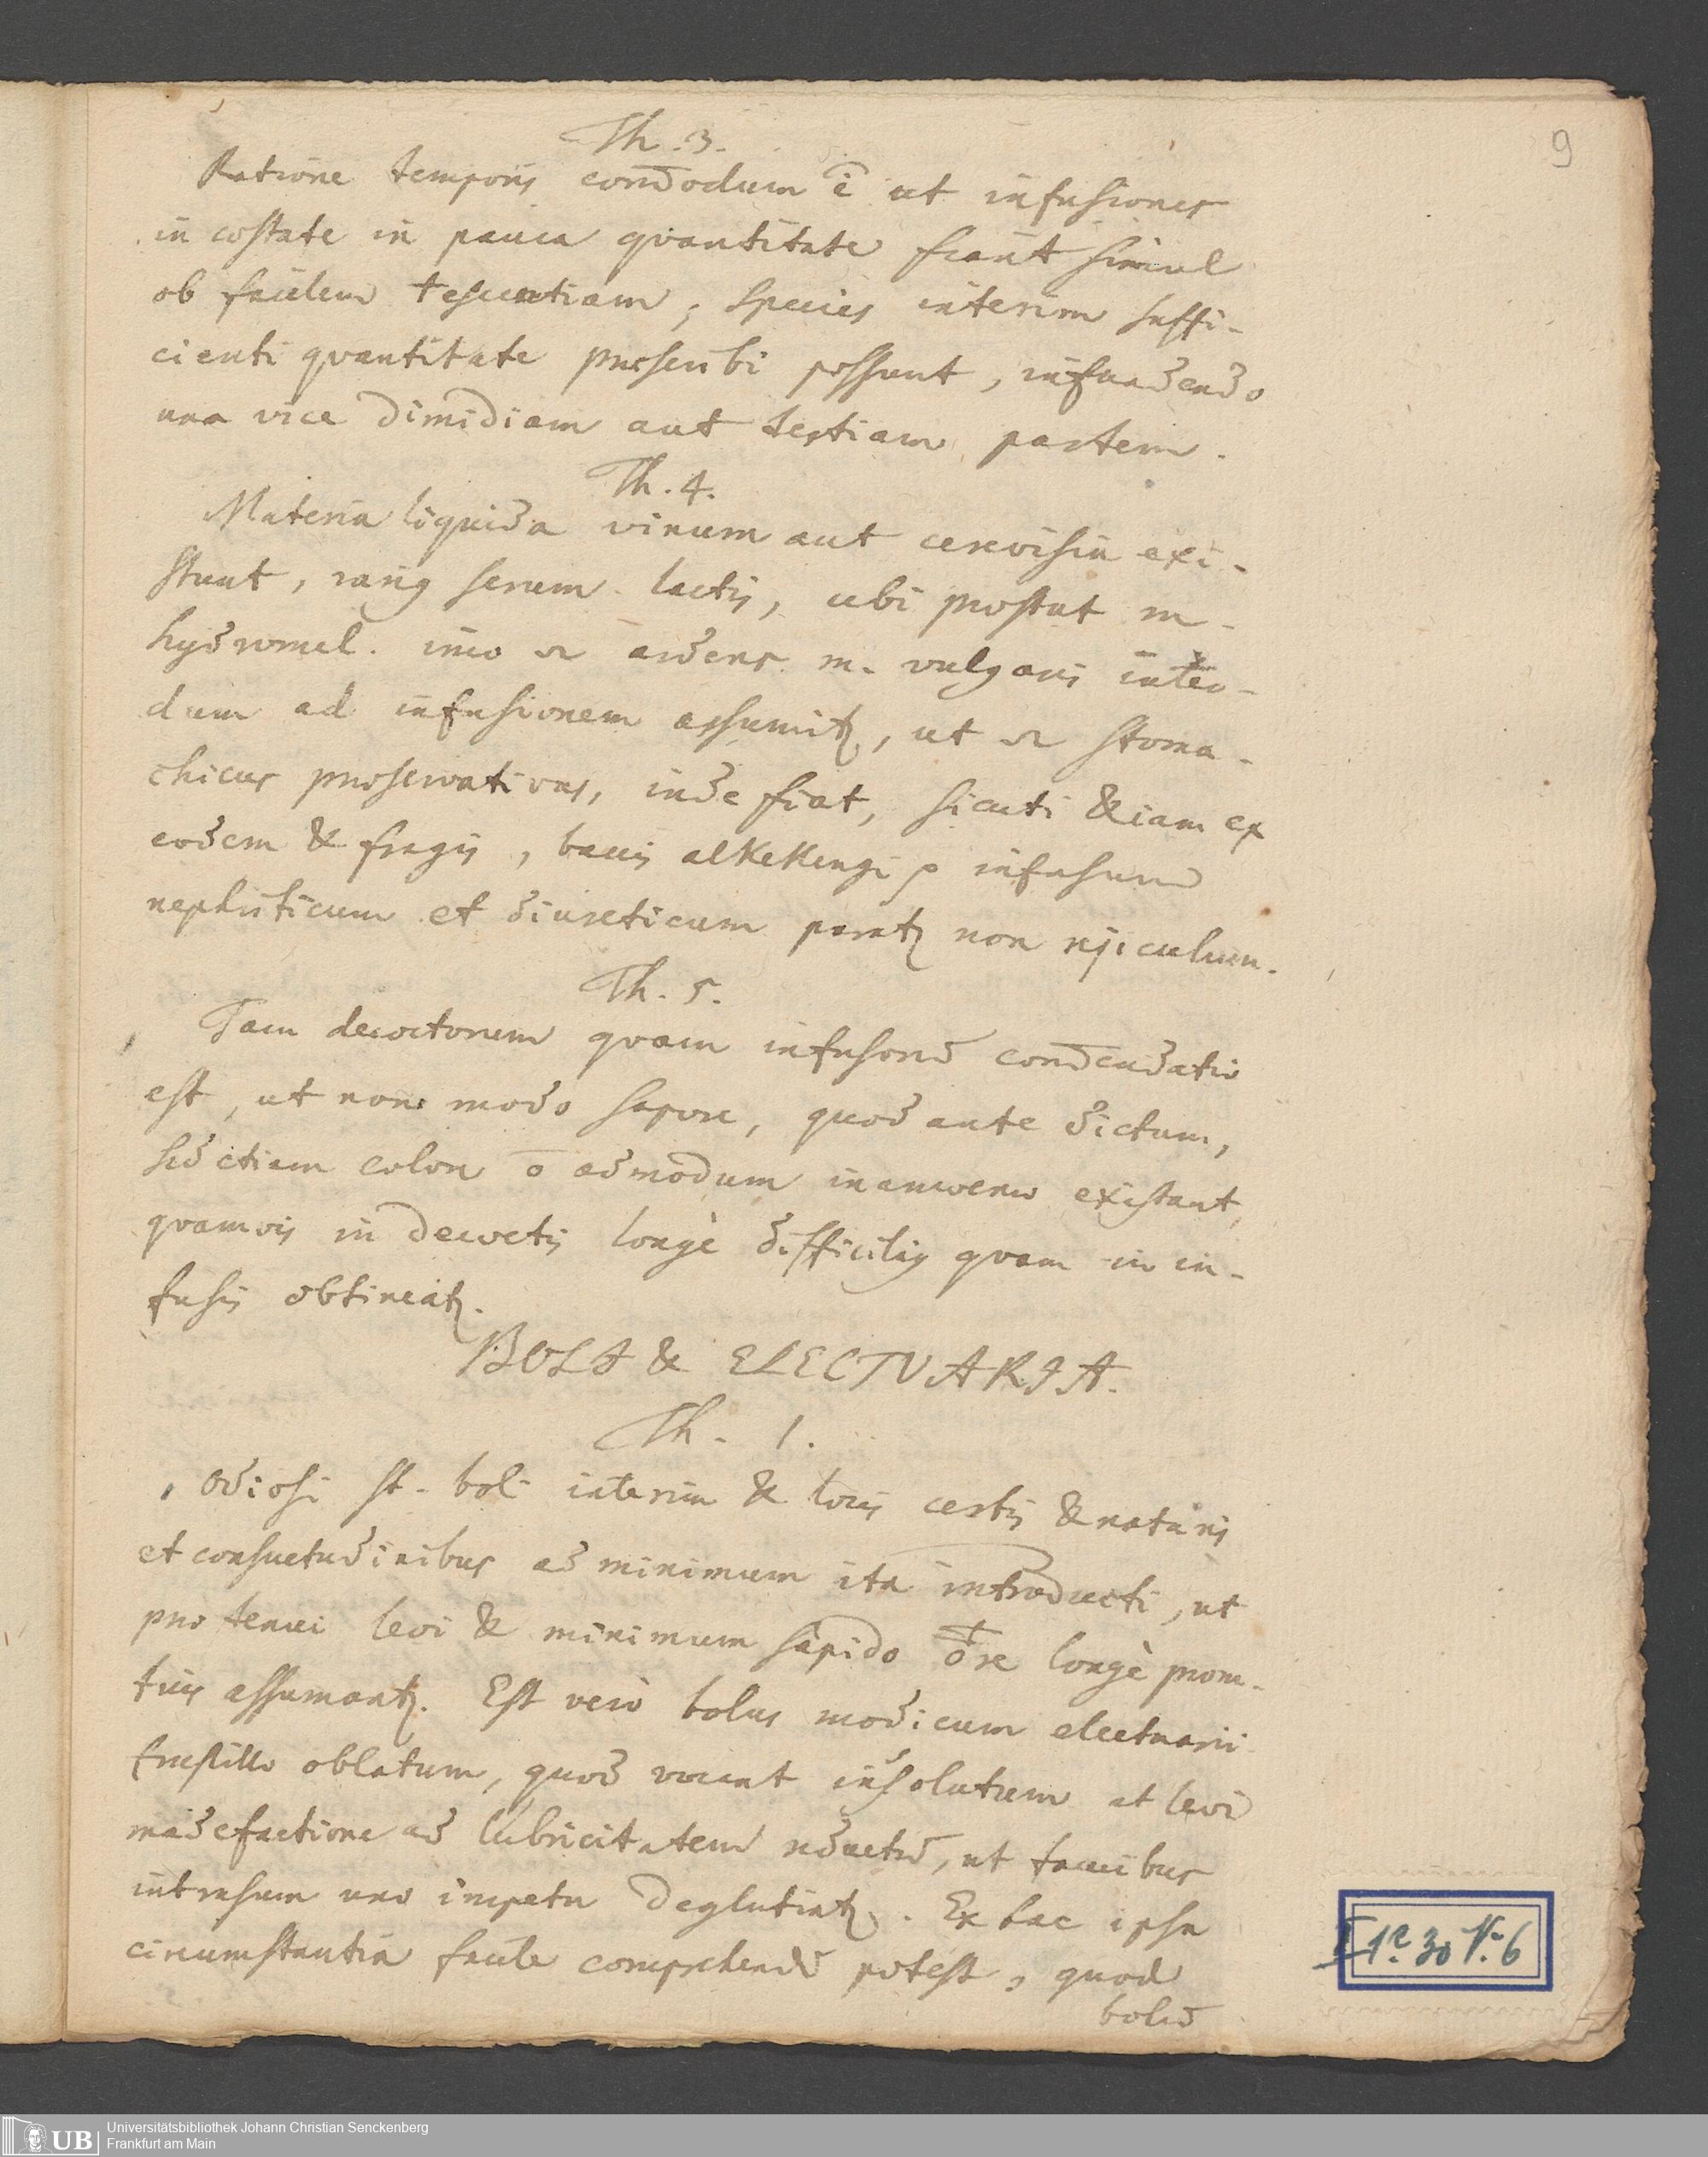 9
Th. 3.
Ratione temporis com̄odum ē ut infusiones
in æstate in pauca qvantitate fiant simul
ob facilem acescentiam, species interim suffi-
cienti qvantitate præscribi possunt, infundendo
una vice dimidiam aut tertiam partem.
Th. 4.
Materia liquida vinum aut cerevisia exi-
stunt, rariq serum lactis, ubi prostat m-
hydromel. imo ardens m. vulgaris inter-
dum ad infusionem assumitʒ, ut stoma-
chicus præservativus, inde fiat, sicuti &iam ex
eodem & fragis, baccis alKeKengi p infusum
nephriticum et diureticum paratʒ non rejiculum.
Th. 5.
Tam decoctorum qvam infusorū com̄endatio
est, ut non modo sapore, quod ante dictum,
sed etiam colore ō admodum inamoeno existant,
qvamvis in decoctis longè difficiliq qvam in in-
fusis obtineatʒ.
BOLI & ELECTVARIA.
Th. 1.
Odiosi st. boli interim & locis certis & naturis
et consuetudinibus ad minimum ita introducti, ut
pro tenui levi & minimum sapido ōre longè prom-
tius assumantʒ. Est verò bolus modicum electuarii
frustillo oblatum, quod vocant insolutum at levi
madefactione ad lubricitatem reductū, ut faucibus
intrusum uno impetu deglutiatʒ. Ex hac ipsa
circumstantia facile comprehendi potest, quod
bolū
I 1? 30 N. 6
UB
Universitätsbibliothek Johann Christian Senckenberg
Frankfurt am Main